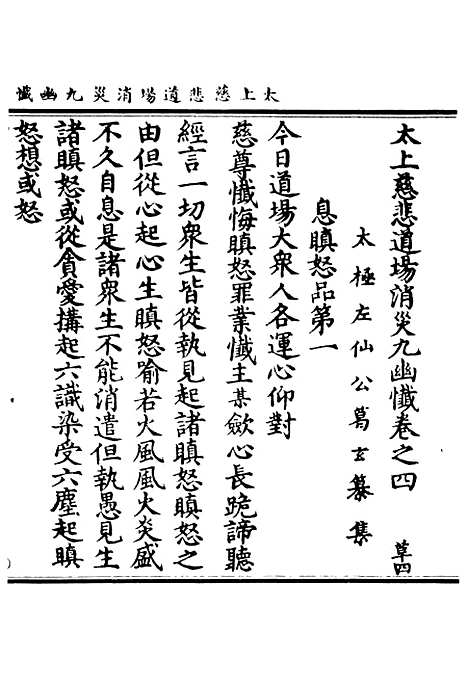 太上慈悲道場消災九幽懺
太上慈悲道場消災九幽懺卷之四 草四
太極左仙公葛玄纂集
息瞋怒品第一
今日道場大衆人各運心仰對
慈尊懺悔瞋怒罪業懺主某歛心長跪諦聽
經言一切衆生皆從執見起諸瞋怒瞋怒之
由但從心起心生瞋怒喻若火風風火炎盛
不久自息是諸衆生不能消遣但執愚見生
諸瞋怒或從貪愛搆起六識染受六塵起瞋
怒想或怒